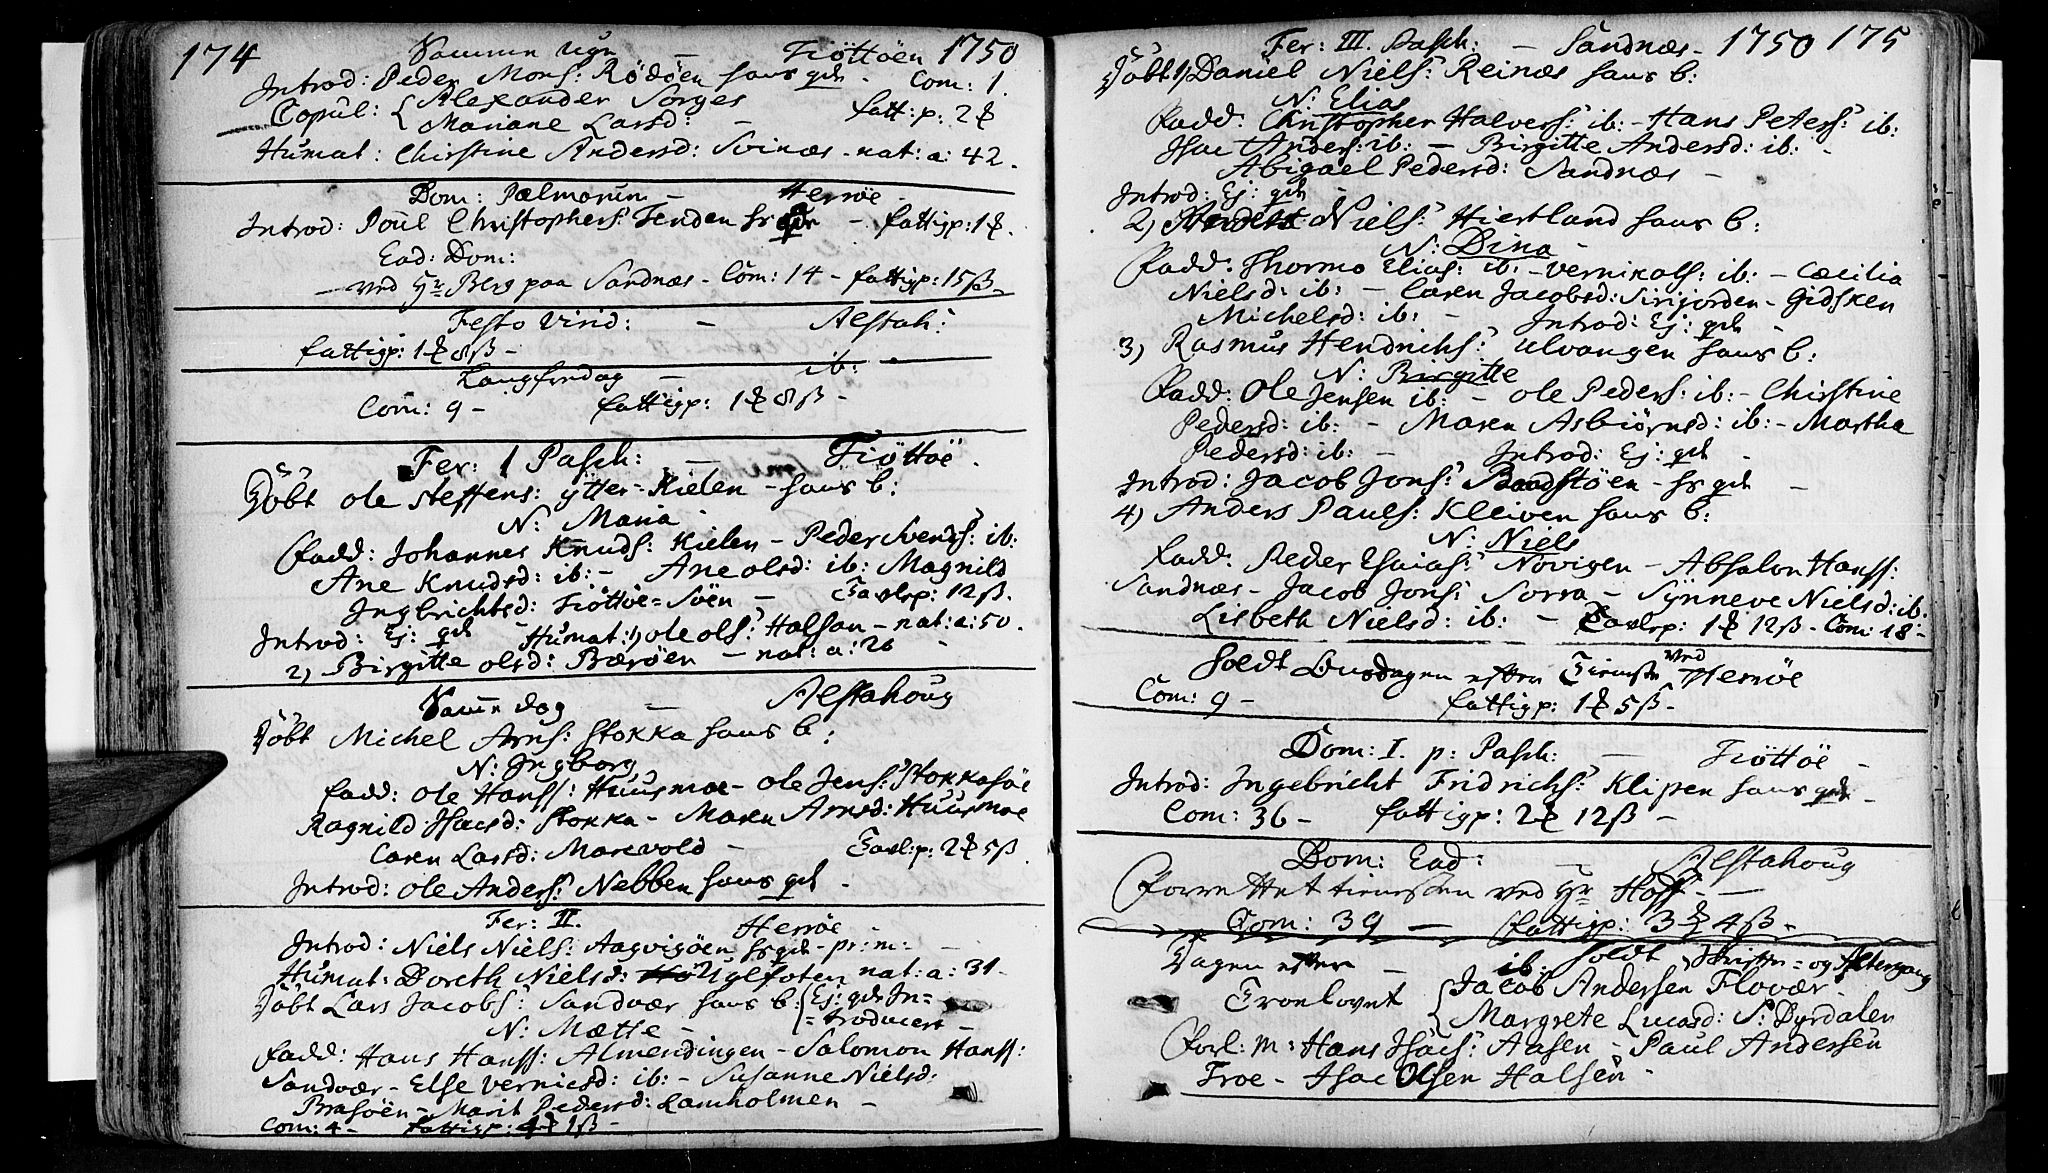 174 Samme Ugn — Tiöttöen 1750
Introd: Peder Mons: Rödöen hans qde Com: 1.
Copul: { Alexander Sorges
Mariane Larsd: — fatt: p: 2
Humat: Christine Andersd: Svinæs - nat: a: 42 -
Dom: Palmarum — Herröe
Introd: Poul Christophers: Tenden hs qde — fattigp: 1
Ead: Dom:
ved Hr Berg paa Sandnæs - Com: 14 - fattigp: 15 ß -
Festo Virid: — Alstah:
fattigp: 1 8 ß -
Langfredag — ib:
Com: 9 - fattigp: 1 8 ß -
Fer: 1 Pasch: — Tiöttöe.
Döbt Ole Steffens: ytter-Kielen - hans b:
N: Maria
Fadd: Johannes Knuds: Kielen - Peder Svends: ib:
Ane Knudsd: ib: - Ane Olsd: ib: Magnild
Ingbrichtsd: Tiöttöe-Söen — Tavlep: 12 ß.
Introd: Ej: qde Humat: 1) Ole Ols: Halsan - nat: a: 50.
2) Birgitte Olsd: Bæröen — nat: a: 26 -
Samme dag — Alstahoug
Döbt Michel Arns: Stokka hans b:
N: Ingborg
Fadd: Ole Hanss: Huusmoe - Ole Jens: Stokkasöe
Ragnild Isacsd: Stokka - Maren Arnsd: Huusmoe
Caren Larsd: Marevold — Tavl: p: 2 5 ß
Introd: Ole Anders: Nebben hans qde -
Fer: II. Herröe -
Introd: Niels Niels: Aagvigöen hs qde - pr: m: —
Humat: Doreth Nielsd: Uglfoten nat: a: 31 -
Döbt Lars Jacobs: Sandvær hans b: { Ej: qde In=
N: Mætte — =troducert -
Fadd: Hans Hanss: Almendingen - Salomon Hanss:
Sandvær - Else Verniesd: ib: - Susanne Nielsd:
Brasöen - Marit Pedersd: Lamholmen -
Com: 4 - fattigp: 1 ß -
Fer: III. Pasch: — Sandnæs - 1750 175
Döbt 1) Daniel Niels: Reinæs hans b:
N: Elias
Fadd: Christopher Halvers: ib: - Hans Peters: ib:
Isac Anders: ib: — Birgitte Andersd: ib: -
Abigael Pedersd: Sandnæs —
Introd: Ej: qde -
2) Niels: Hiertland hans b:
N: Dina -
Fadd: Thormo Elias: ib: - Vernikals: ib: - Cæcilia
Nielsd: ib: — Caren Jacobsd: Sirijorden - Gidsken
Michelsd: ib: - Introd: Ej: qde -
3) Rasmus Hendrichs: Ulvangen hans b:
N: Birgitte
Fadd: Ole Jensen ib: - Ole Peders: ib: - Christine
Pedersd: ib: - Maren Asbiörnsd: ib: - Martha
Pedersd: ib: - Introd: Ej: qde -
Introd: Jacob Jons: Baadstöen - hs qde —
4) Anders Pauls: Kleiven hans b:
N: Niels
Fadd: Peder Esaias: Novigen - Absalon Hanss:
Sandnæs - Jacob Jons: Sorra - Synneve Nielsd: ib:
Lisbeth Nielsd: ib: — Tavlep: 1 12 ß - Com: 18 -
holdt Onsdagen efter Tieneste ved Herröe
Com: 9 - fattigp: 1 5 ß -
Dom: I. p: Pasch: — Tiöttöe -
Introd: Ingebricht Fridrichs: Klipen hans qde -
Com: 36 - fattigp: 2 12 ß -
Dom: Ead: — Alstahoug
Forrettet tienesten ved Hr Hoff -
Com: 39 — fattigp: 3 4 ß -
Dagen efter — ib: holdt Skrifte= og Altergang
Troelovet { Jacob Andersen Flovær -
Margrete Lucasd: S: Dyrdalen
Forl: M: Hans Isacs: Aasen - Paul Andersen
Troe - Isac Olsen Halsen -